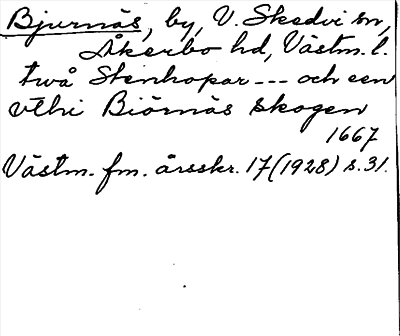 Bjurnäs, by, V. Skedvi sn,
Åkerbo hd, Västm. l.
twå Stenhopar --- och een
vthi Biörnäs skogen
1667
Västm. fm. årsskr. 17 (1928) s. 31.